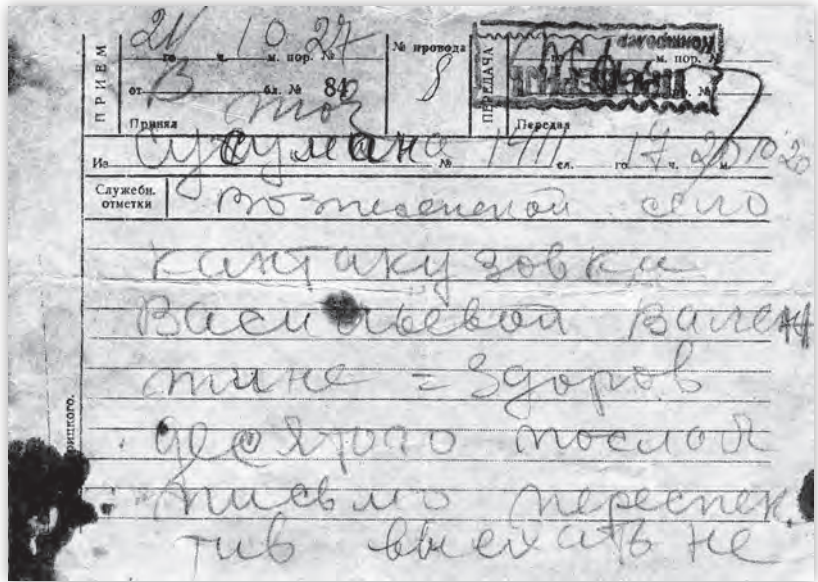 ПРИЕМ
21 го 10 ч. 27 м. пор. №
от В бл. № 84
Принял
№ провода
8
ПЕРЕДАЧА
го м. пор. №
Передал
Контролер
Из Сусумана № 1411 сл. го 17 ч. 20 м. 10 20
Служебн. отметки
Вознесенской село
кантакузовка
Васильевой Вален
тине = Здоров
десятого послал
письмо переспек
тив выехать не
рицкого.